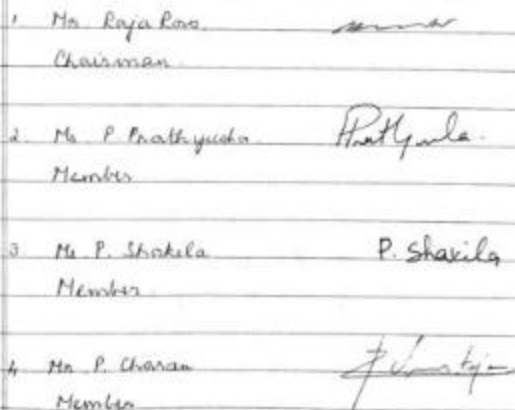 1. Mr. Raja Rao.
Chairman
2. Ms. P. Prathyusha.
Member
3 Ms. P. Shakila P. Shakila
Member
4 Mr. P. Charan
Member